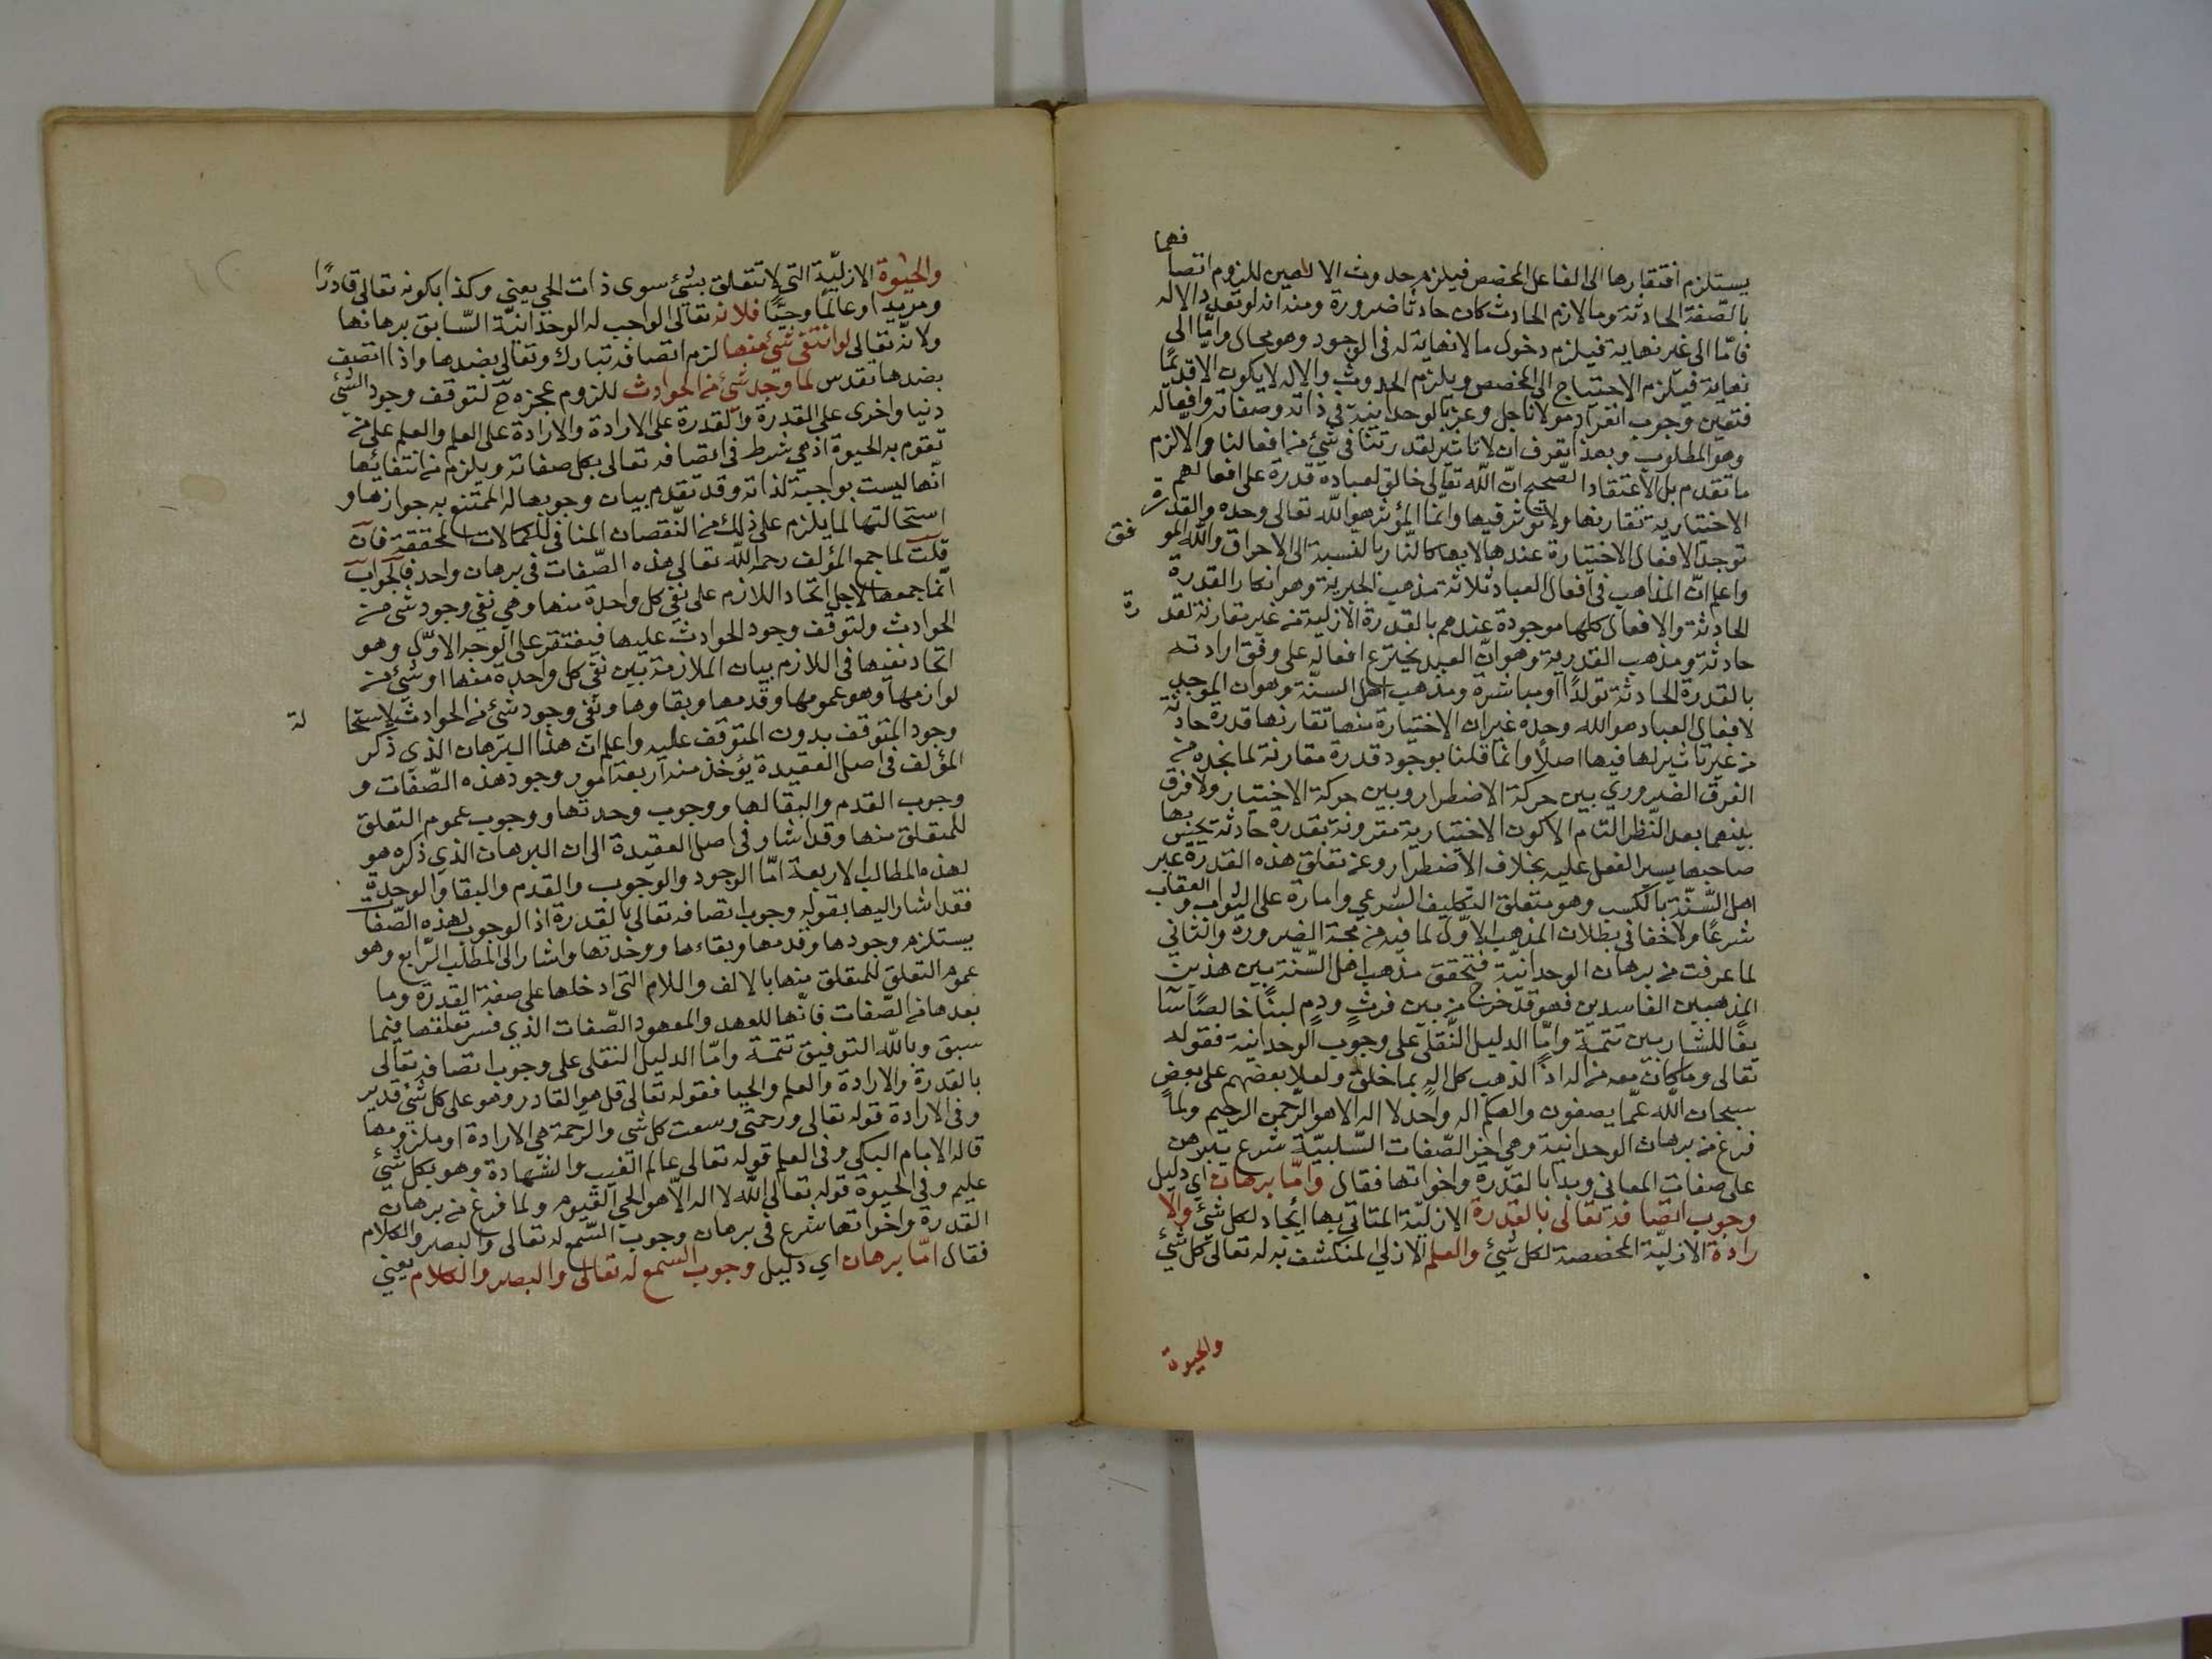 يستلزم افتقارها الى الفاعل المخصص فيلزم حدوث الالهين للزوم اتصا فهما
بالصفة الحادثة وما لازم الحادث كان حادثا ضرورة ومنه انه لو تعدد الاله
فامّا الى غير نهاية فيلزم دخول ما لا نهاية له في الوجود وهو محال وامّا الى
نهاية فيلزم الاحتياج الى المخصص ويلزم الحدوث والاله لا يكون الا قديمًا
فتعين وجوب انفراد مولانا جل وعز بالوحدانية في ذاته وصفاته وافعاله
وهو المطلوب وبهذا تعرف ان لا تاثير لقدرتنا في شيء من افعالنا والا لزم
ما تقدم بل الاعتقاد الصحيح انّ الله تعالى خالق لعباده قدرة على افعالهم
الاختيارية تقارنها ولا تؤثر فيها وانما المؤثر هو الله تعالى وحده والقدرة
توجد الافعال الاختيارة عندها لا بها كالنار بالنسبة الى الاحراق والله المو فق
واعلم انّ المذاهب في افعال العباد ثلاثة مذهب الجبرية وهو انكار القدرة
الحادثة والافعال كلها موجودة عندهم بالقدرة الازلية من غير مقارنة لقد رة
حادثة ومذهب القدرية وهو انّ العبد يخترع افعاله على وفق ارادته
بالقدرة الحادثة تولدًا او مباشرة ومذهب اهل السنّة وهو ان الموجد
لافعال العباد هو الله وحده غير ان الاختيارة منها تقارنها قدرة حادثة
من غير تاثير لها فيها اصلًا وانما قلنا بوجود قدرة مقارنة لما نجده من
الفرق الضروري بين حركة الاضطرار وبين حركة الاختيار ولا فرق
بينهما بعد النّظر التام الا كون الاختيارية مقرونة بقدرة حادثة يحس بها
صاحبها يسير الفعل عليه بخلاف الاضطرار وعن تعلق هذه القدرة عبر
اهل السّنّة بالكسب وهو متعلق التكليف الشرعي وامارة على الثواب والعقاب
شرعًا ولا خفا في بطلان المذهب الاوّل لما فيه من مجة الضرورة والثاني
لما عرفت من برهان الوحدانيّة فتحقق مذهب اهل السّنّة بين هذين
المذهبين الفاسدين فهو قد خرج من بين فرثٍ ودمٍ لبنًا خالصًا سآ
يغًا للشاربين تتمة وامّا الدليل النّقلى على وجوب الوحدانية فقوله
تعالى وما كان معه من اله اذًا لذهب كل الهٍ بما خلق ولعلا بعضهم على بعضٍ
سبحان الله عمّا يصفون والهكم اله واحد لا اله الا هو الرّحمن الرحيم ولما
فرغ من برهان الوحدانية وهي اخر الصّفات السّلبيّة شرع يبرهن
على صفات المعاني وبدا بالقدرة واخواتها فقال وامّا برهان اي دليل
وجوب اتصافه تعالى بالقدرة الازليّة المتاتي بها ايجاد لكل شيء والا
رادة الازليّة المخصصة لكل شيء والعلم الازلي المنكشف به له تعالى كل شيء
والحيوة
والحيٰوة الازليّة التي لا تتعلق بشيء سوى ذات الحي يعني وكذا بكونه تعالى قادرًا
ومريدا وعالمًا وحيًّا فلانه تعالى الواجب له الوحدانيّة السّابق برهانها
ولانّه تعالى لو انتفى شيء منها لزم اتصافه تبارك وتعالى بضدها واذا اتصف
بضدها تقدس لما وجد شيء من الحوادث للزوم عجزه ح لتوقف وجود الشئ
دنيا واخرى على القدرة والقدرة على الارادة والارادة على العلم والعلم على من
تقوم به الحيوة اذ هي شرط في اتصافه تعالى بكل صفاته ويلزم من انتفائها
انّها ليست بواجبة لذاته وقد تقدم بيان وجوبها له الممتنع به جوازها و
استحالتها لما يلزم على ذلك من النّقصان المنافي للكمالات المحققة فان
قلت لما جمع المؤلف رحمه الله تعالى هذه الصّفات في برهان واحد فالجواب
انّما جمعها لاجل اتحاد اللازم على نفي كل واحدة منها وهي نفي وجود شيء من
الحوادث ولتوقف وجود الحوادث عليها فيفتقر على الوجه الاوّل وهو
اتحاد نفيها في اللازم بيان الملازمة بين نفي كل واحدة منها او شيء من
لوازمها وهو عمومها وقدمها وبقاوها ونفي وجود شيء من الحوادث لاستحا لة
وجود المتوقف بدون المتوقف عليه واعلم ان هذا البرهان الذي ذكر
المؤلف في اصل العقيدة يؤخذ منه اربعة امور وجود هذه الصّفات و
وجوب القدم والبقا لها ووجوب وحدتها ووجوب عموم التعلق
للمتعلق منها وقد اشار في اصل العقيدة الى ان البرهان الذي ذكره هو
لهذه المطالب الاربعة امّا الوجود والوجوب والقدم والبقا والوحدة
فقد اشار اليها بقوله وجوب اتصافه تعالى بالقدرة اذ الوجوب لهذه الصّفات
يستلزم وجودها وقدمها وبقاءها ووحدتها واشار الى المطلب الرّابع وهو
عموم التعلق للمتعلق منها بالالف واللام التى ادخلها على صفة القدرة وما
بعدها من الصّفات فانّها للعهد والمعهود الصّفات الذي فسر تعلقها فيما
سبق وبالله التوفيق تتمة وامّا الدليل النقلى على وجوب اتصافه تعالى
بالقدرة والارادة والعلم والحيا فقوله تعالى قل هو القادر وهو على كل شيء قدير
وفي الارادة قوله تعالى ورحمتى وسعت كل شي والرحمة هي الارادة او ملزومها
قاله الامام البكي وفي العلم قوله تعالى عالم الغيب والشهادة وهو بكل شئ
عليم وفي الحيوة قوله تعالى الله لا اله الّا هو الحي القيوم ولما فرغ من برهان
القدرة واخواتها شرع في برهان وجوب السّمع له تعالى والبصر والكلام
فقال امّا برهان اي دليل وجوب السمع له تعالى والبصر والكلام يعني